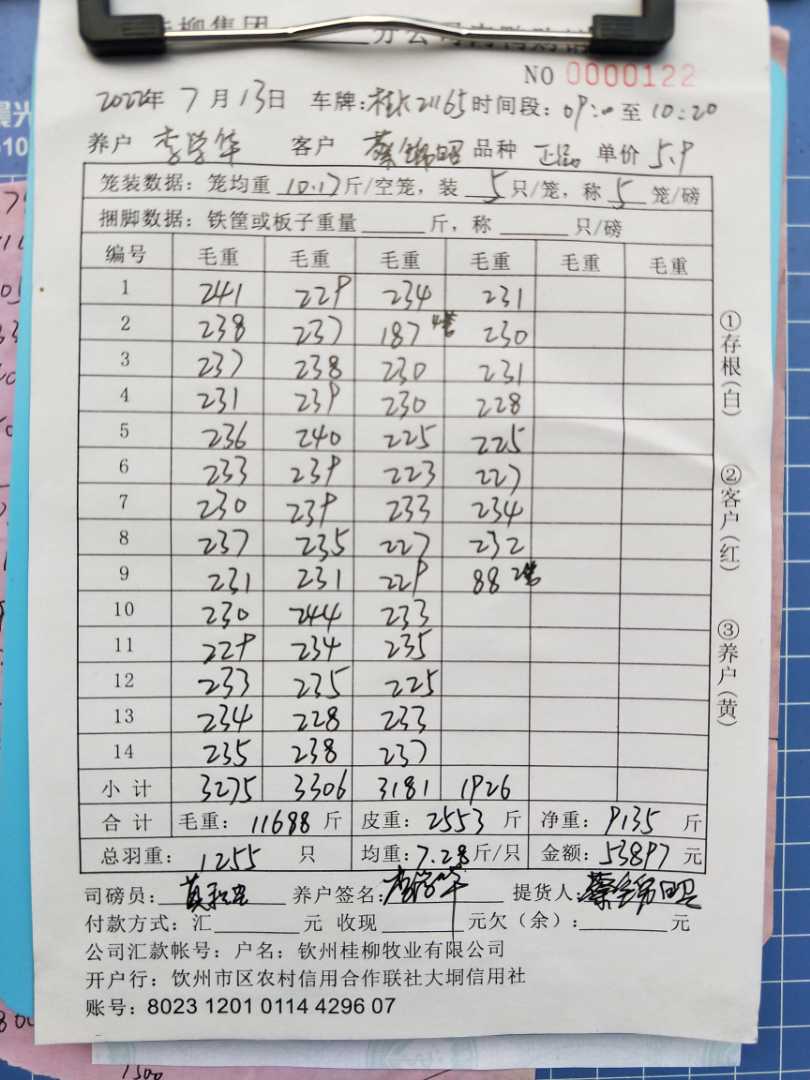 柳集团 分公司
NO 0000122
2022年 7月13日 车牌:桂 21165 时间段: 09:00 至 10:20
养户 李学华 客户 蔡锦昭 品种 正品 单价 5.9
笼装数据: 笼均重 10.17 斤/空笼, 装 5 只/笼, 称 5 笼/磅
捆脚数据: 铁筐或板子重量 斤, 称 只/磅
编号 毛重 毛重 毛重 毛重 毛重 毛重
1 241 229 234 231
2 238 237 187 4笼 230
3 237 238 230 231
4 231 239 230 228
5 236 240 225 225
6 233 239 223 227
7 230 239 233 234
8 237 235 227 232
9 231 231 229 88 2笼
10 230 244 233
11 229 234 235
12 233 235 225
13 234 228 233
14 235 238 237
小计 3275 3306 3181 1926
合计 毛重: 11688 斤 皮重: 2553 斤 净重: 9135 斤
总羽重: 1255 只 均重: 7.28 斤/只 金额: 53897 元
司磅员: 养户签名: 李学华 提货人: 蔡锦昭
付款方式: 汇 元 收现 元欠(余): 元
公司汇款帐号: 户名: 钦州桂柳牧业有限公司
开户行: 饮州市区农村信用合作联社大垌信用社
账号: 8023 1201 0114 4296 07
①存根(白)
②客户(红)
③养户(黄)
1500